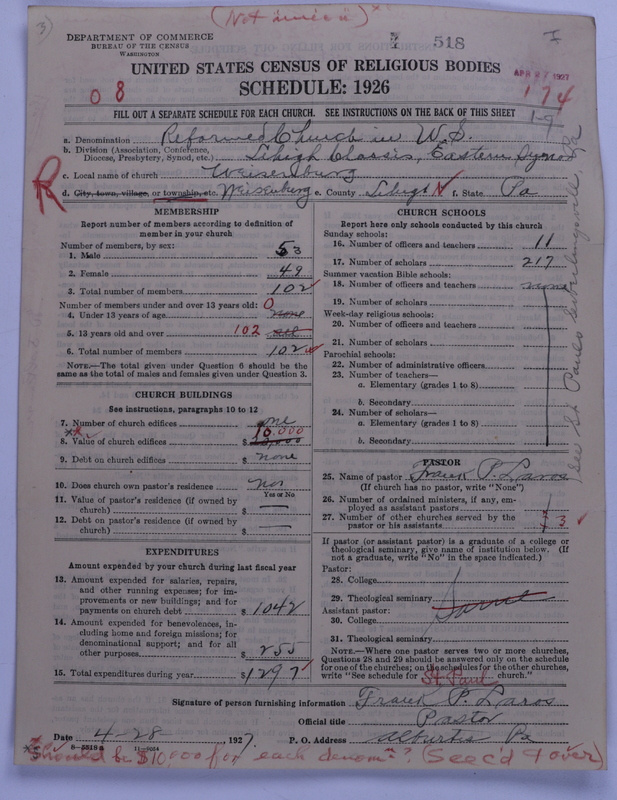 3)
(Not
DEPARTMENT OF COMMERCE
BUREAU OF THE CENSUS
WASHINGTON
518
I
UNITED STATES CENSUS OF RELIGIOUS BODIES
APR 27 1927
SCHEDULE: 1926
0 8
174
FILL OUT A SEPARATE SCHEDULE FOR EACH CHURCH. SEE INSTRUCTIONS ON THE BACK OF THIS SHEET
1-9
a. Denomination Reformed Church in U.S.
b. Division (Association, Conference, Diocese, Presbytery, Synod, etc.) Lehigh Classis, Eastern Synod
c. Local name of church Weisenburg
d. City, town, village, or township, etc. Weisenburg e. County Lehigh f. State Pa
MEMBERSHIP
Report number of members according to definition of
member in your church
Number of members, by sex:
1. Male 53
2. Female 49
3. Total number of members 102
Number of members under and over 13 years old:
4. Under 13 years of age none 0
5. 13 years old and over 102 all
6. Total number of members 102
NOTE.—The total given under Question 6 should be the
same as the total of males and females given under Question 3.
CHURCH BUILDINGS
See instructions, paragraphs 10 to 12
7. Number of church edifices one
8. Value of church edifices $ 10,000
9. Debt on church edifices $ none
10. Does church own pastor's residence no
Yes or No
11. Value of pastor's residence (if owned by
church) $ —
12. Debt on pastor's residence (if owned by
church) $ —
EXPENDITURES
Amount expended by your church during last fiscal year
13. Amount expended for salaries, repairs,
and other running expenses; for im-
provements or new buildings; and for
payments on church debt $ 1042
14. Amount expended for benevolences, in-
cluding home and foreign missions; for
denominational support; and for all
other purposes $ 255
15. Total expenditures during year $ 1297
CHURCH SCHOOLS
Report here only schools conducted by this church
Sunday schools:
16. Number of officers and teachers 11
17. Number of scholars 217
Summer vacation Bible schools:
18. Number of officers and teachers none
19. Number of scholars
Week-day religious schools:
20. Number of officers and teachers
21. Number of scholars
Parochial schools:
22. Number of administrative officers
23. Number of teachers—
a. Elementary (grades 1 to 8)
b. Secondary
24. Number of scholars—
a. Elementary (grades 1 to 8)
b. Secondary
PASTOR
25. Name of pastor Frank P. Laros
(If church has no pastor, write "None")
26. Number of ordained ministers, if any, em-
ployed as assistant pastors
27. Number of other churches served by the
pastor or his assistants 3
If pastor (or assistant pastor) is a graduate of a college or
theological seminary, give name of institution below. (If
not a graduate, write "No" in the space indicated.)
Pastor:
28. College
29. Theological seminary Same
Assistant pastor:
30. College
31. Theological seminary
NOTE.—Where one pastor serves two or more churches,
Questions 28 and 29 should be answered only on the schedule
for one of the churches; on the schedules for the other churches,
write "See schedule for St Paul church."
(See St Pauls
Signature of person furnishing information Frank P. Laros
Official title Pastor
Date 4-28 1927. P. O. Address Alburtis Pa
8-5518a 11-9054
Should be $10,000 for each denom? (See c'd 9 over)